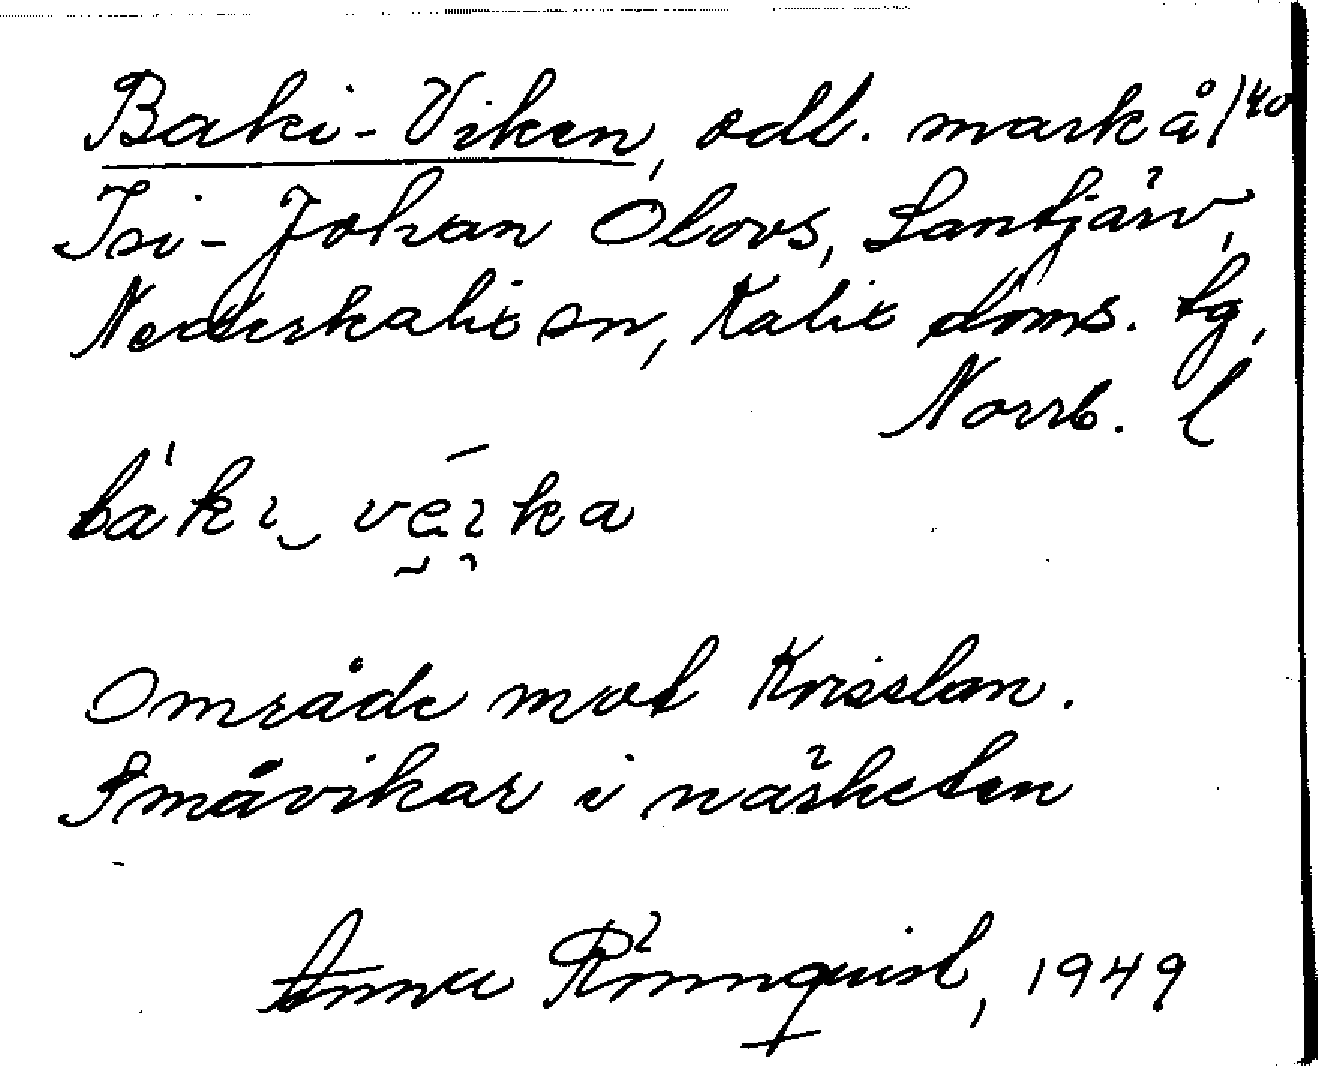 Baki-Viken, odl. mark å 1/40
Isi-Johan Olovs, Lantjärv,
Nederkalix sn, Kalix doms. tg,
Norrb. l
Område mot Krisslan.
Småvikar i närheten
Anna Rönnquist, 1949